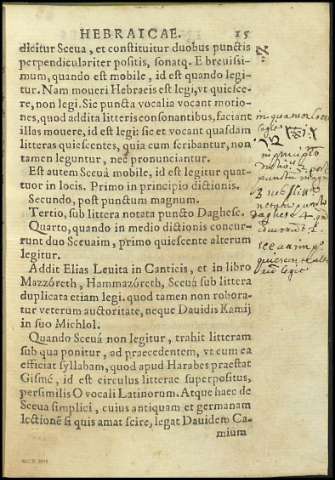 HEBRAICAE. 15
dicitur Sceua, et constituitur duobus punctis
perpendiculariter positis, sonatq. E breuissi-
mum, quando est mobile, id est quando legi-
tur. Nam moueri Hebraeis est legi, vt quiesce-
re, non legi. Sic puncta vocalia vocant motio-
nes, quod addita litteris consonantibus, faciant
illas mouere, id est legi: sic et vocant quasdam
litteras quiescentes, quia cum scribantur, non
tamen leguntur, nec pronunciantur.
Est autem Sceuá mobile, id est legitur quat-
tuor in locis. Primo in principio dictionis.
Secundo, post punctum magnum.
Tertio, sub littera notata puncto Daghesc.
Quarto, quando in medio dictionis concur-
runt duo Sceuaim, primo quiescente alterum
legitur.
Addit Elias Leuita in Canticis, et in libro
Mazzóreth, Hammazóreth, Sceuá sub littera
duplicata etiam legi. quod tamen non robora-
tur veterum auctoritate, neque Dauidis Kamij
in suo Michlol.
Quando Sceuá non legitur, trahit litteram
sub qua ponitur, ad praecedentem, vt cum ea
efficiat syllabam, quod apud Harabes praestat
Gismé, id est circulus litterae superpositus,
persimilis O vocali Latinorum. Atque haec de
Sceua simplici, cuius antiquam et germanam
lectionē si quis amat scire, legat Dauidem Ca-
mium
in principio